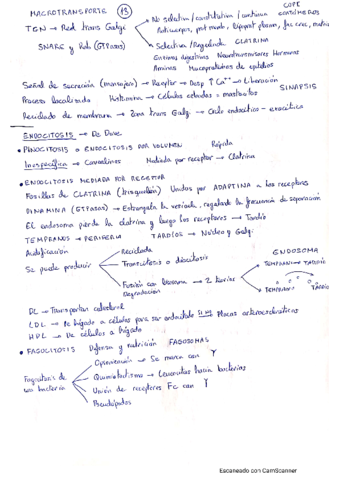 MACROTRANSPORTE 13
TGN → Red trans Golgi
SNARE y Rabs (GTPasas)
COPI
No selectiva / constitutiva / continua COATÓMEROS
Anticuerpos, prot memb, lipoprot plasm, fac crec, matriz
Selectiva / Regulada CLATRINA
Enzimas digestivas Neurotransmisores Hormonas
Aminas Mucoproteínas de epitelios
Señal de secreción (mensajero) → Receptor → Desp ↑ Ca++ → Liberación
Proceso localizado Histamina → Células cebadas = mastocitos SINAPSIS
Reciclado de membrana → Zona trans Golgi → Ciclo endocítico - exocítico
ENDOCITOSIS → De Duve.
• PINOCITOSIS o ENDOCITOSIS POR VOLUMEN Rápida
Inespecífica → Caveolinas Mediada por receptor → Clatrina
• ENDOCITOSIS MEDIADA POR RECEPTOR
Fosillas de CLATRINA (trisquelion) Unidas por ADAPTINA a los receptores
DINAMINA (GTPasa) → Estrangula la vesícula, regulando la frecuencia de separación
El endosoma pierde la clatrina y luego los receptores → Tardío
TEMPRANOS → PERIFERIA TARDÍOS → Núcleo y Golgi
Acidificación
Se puede producir
Reciclado
Transcitosis o diacitosis
Fusión con lisosoma → 2 teorías
Degradación
ENDOSOMA
TEMPRANO → TARDÍO
TEMPRANO TARDÍO
LDL → De hígado a células para ser endocitado Si no Placas ateroescleróticas
HDL → De células a hígado
• FAGOCITOSIS Defensa y nutrición FAGOSOMAS
Fagocitosis de una bacteria
Opsonización → Se marca con Y
Quimiotactismo → Leucocitos hacia bacterias
Unión de receptores Fc con Y
Pseudópodos
Escaneado con CamScanner